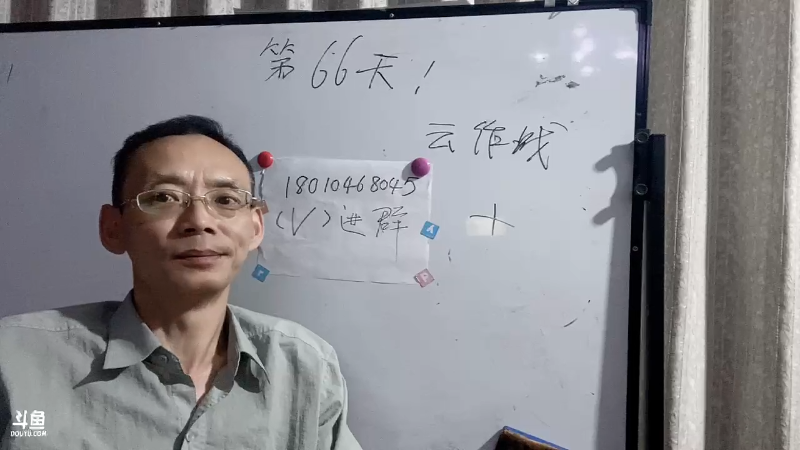 第66天!
云作战
18010468045
(V)进群
+
斗鱼
DOUYU.COM